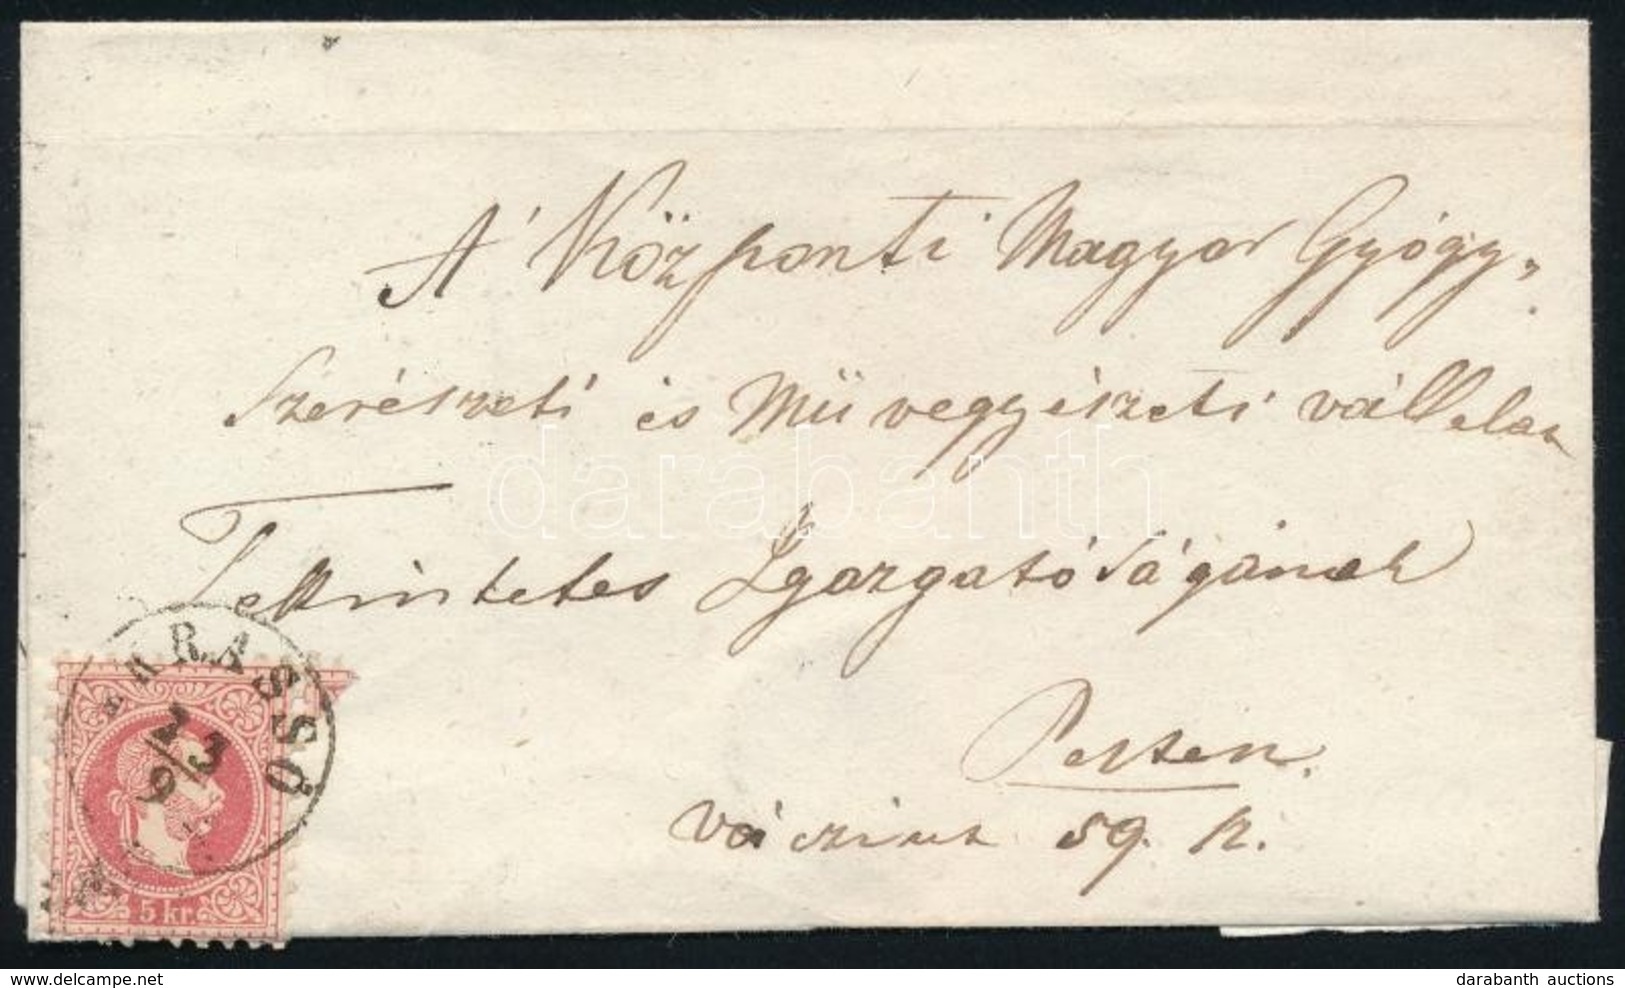 A' Központi Magyar Gyógy„
Szerészeti és Művegyészeti vállalat
Tekintetes Igazgatóságának
Pesten.
váczi ut 59. k.
KARASSÓ
2/9 3
5 kr.
darabanth
delcampe.net
darabanth auctions